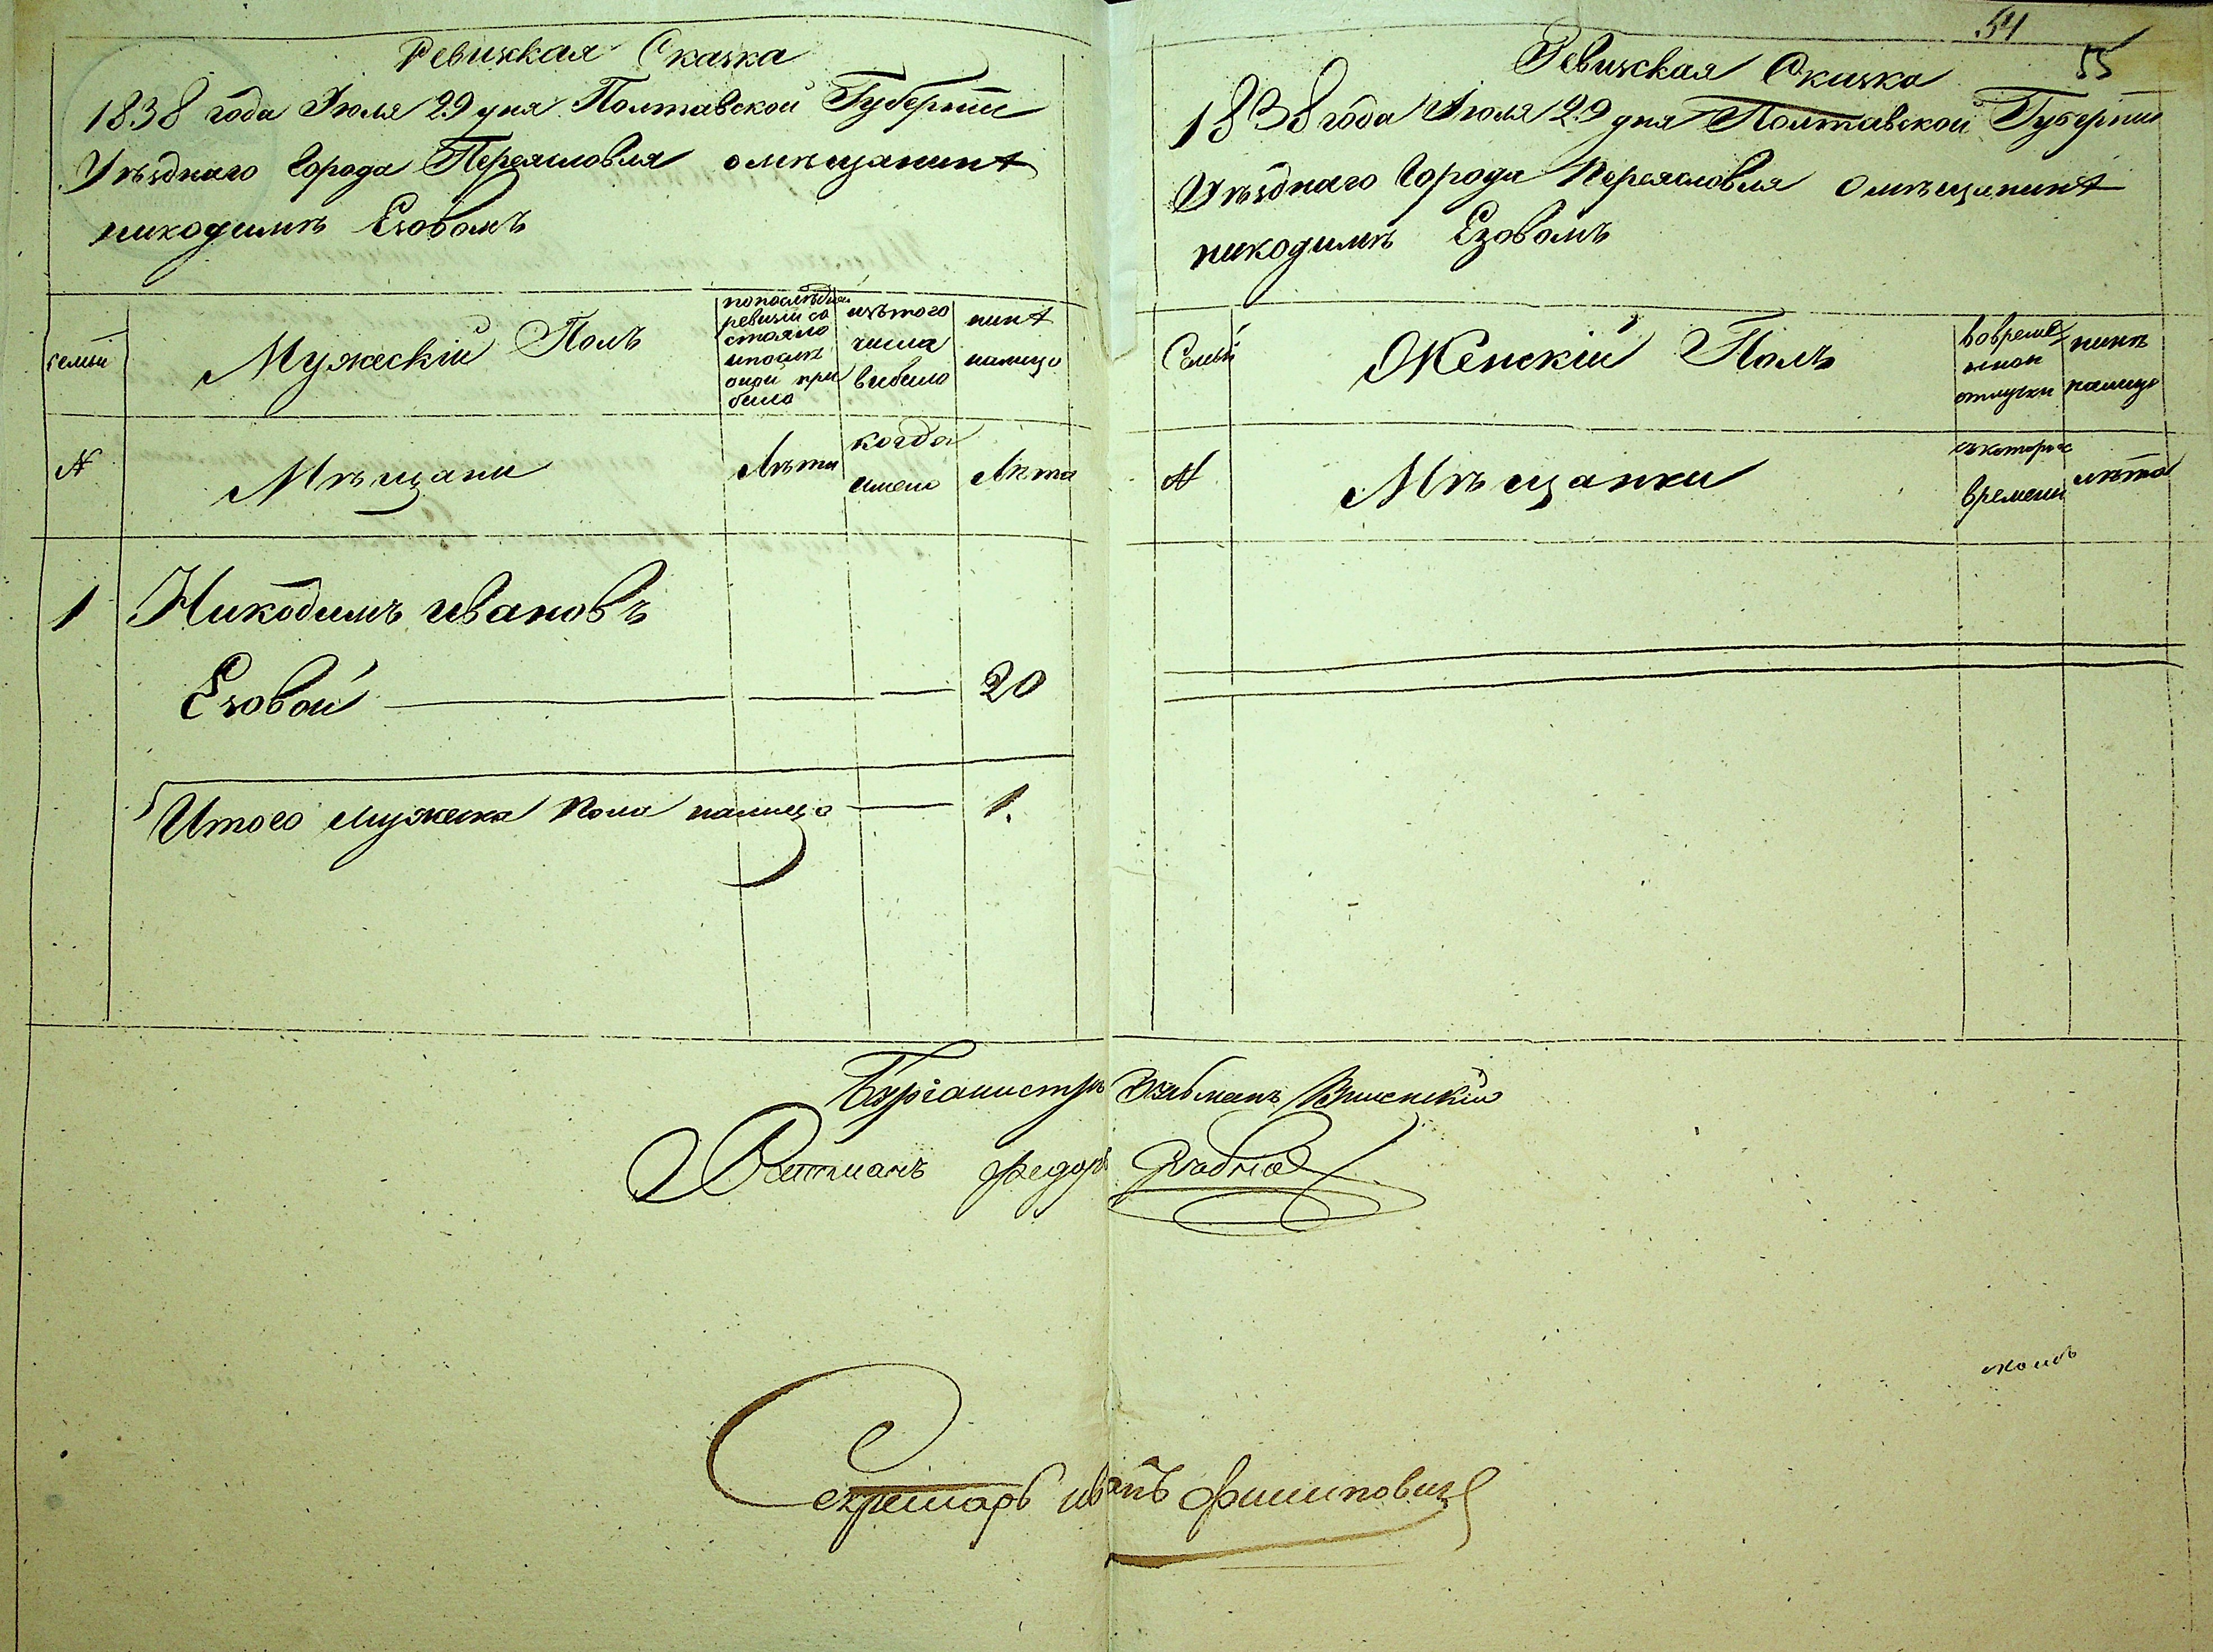 Ревизская Сказка
1838 года Июля 29 дня Полтавской Губернии
Уѣзднаго Города Переясловля омѣщанинѣ
никодимѣ Езовомъ
семьи
Мужескій Полъ
попослѣдней
ревизіи со
стояло
ипослѣ
оной при
было
изътого
числа
выбыло
нинѣ
налицо
№
Мѣщани
Лѣта
когда
имено
Лѣта
1
Никодимъ ивановъ
Езовой
20
Итого мужеска пола налицо
1.
54
55
Ревизская Сказка
1838 года Июля 29 дня Полтавской Губернии
Уѣзднаго Города Переясловля омѣщанинѣ
никодимѣ Езовомъ
Семьи
Женскій Полъ
вовремѣ
нной
отлучки
нинѣ
налицо
№
Мѣщанки
съкотораго
времени
лѣта
Бургамистръ Вишенскій
Ратманъ федоръ
Секретарь иванъ филиповичь